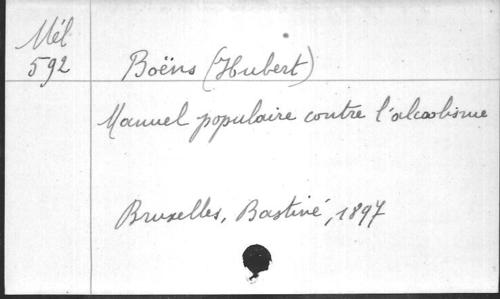 Mél
592
Boëns (Hubert)
Manuel populaire contre l'alcoolisme
Bruxelles, Bastiné, 1897